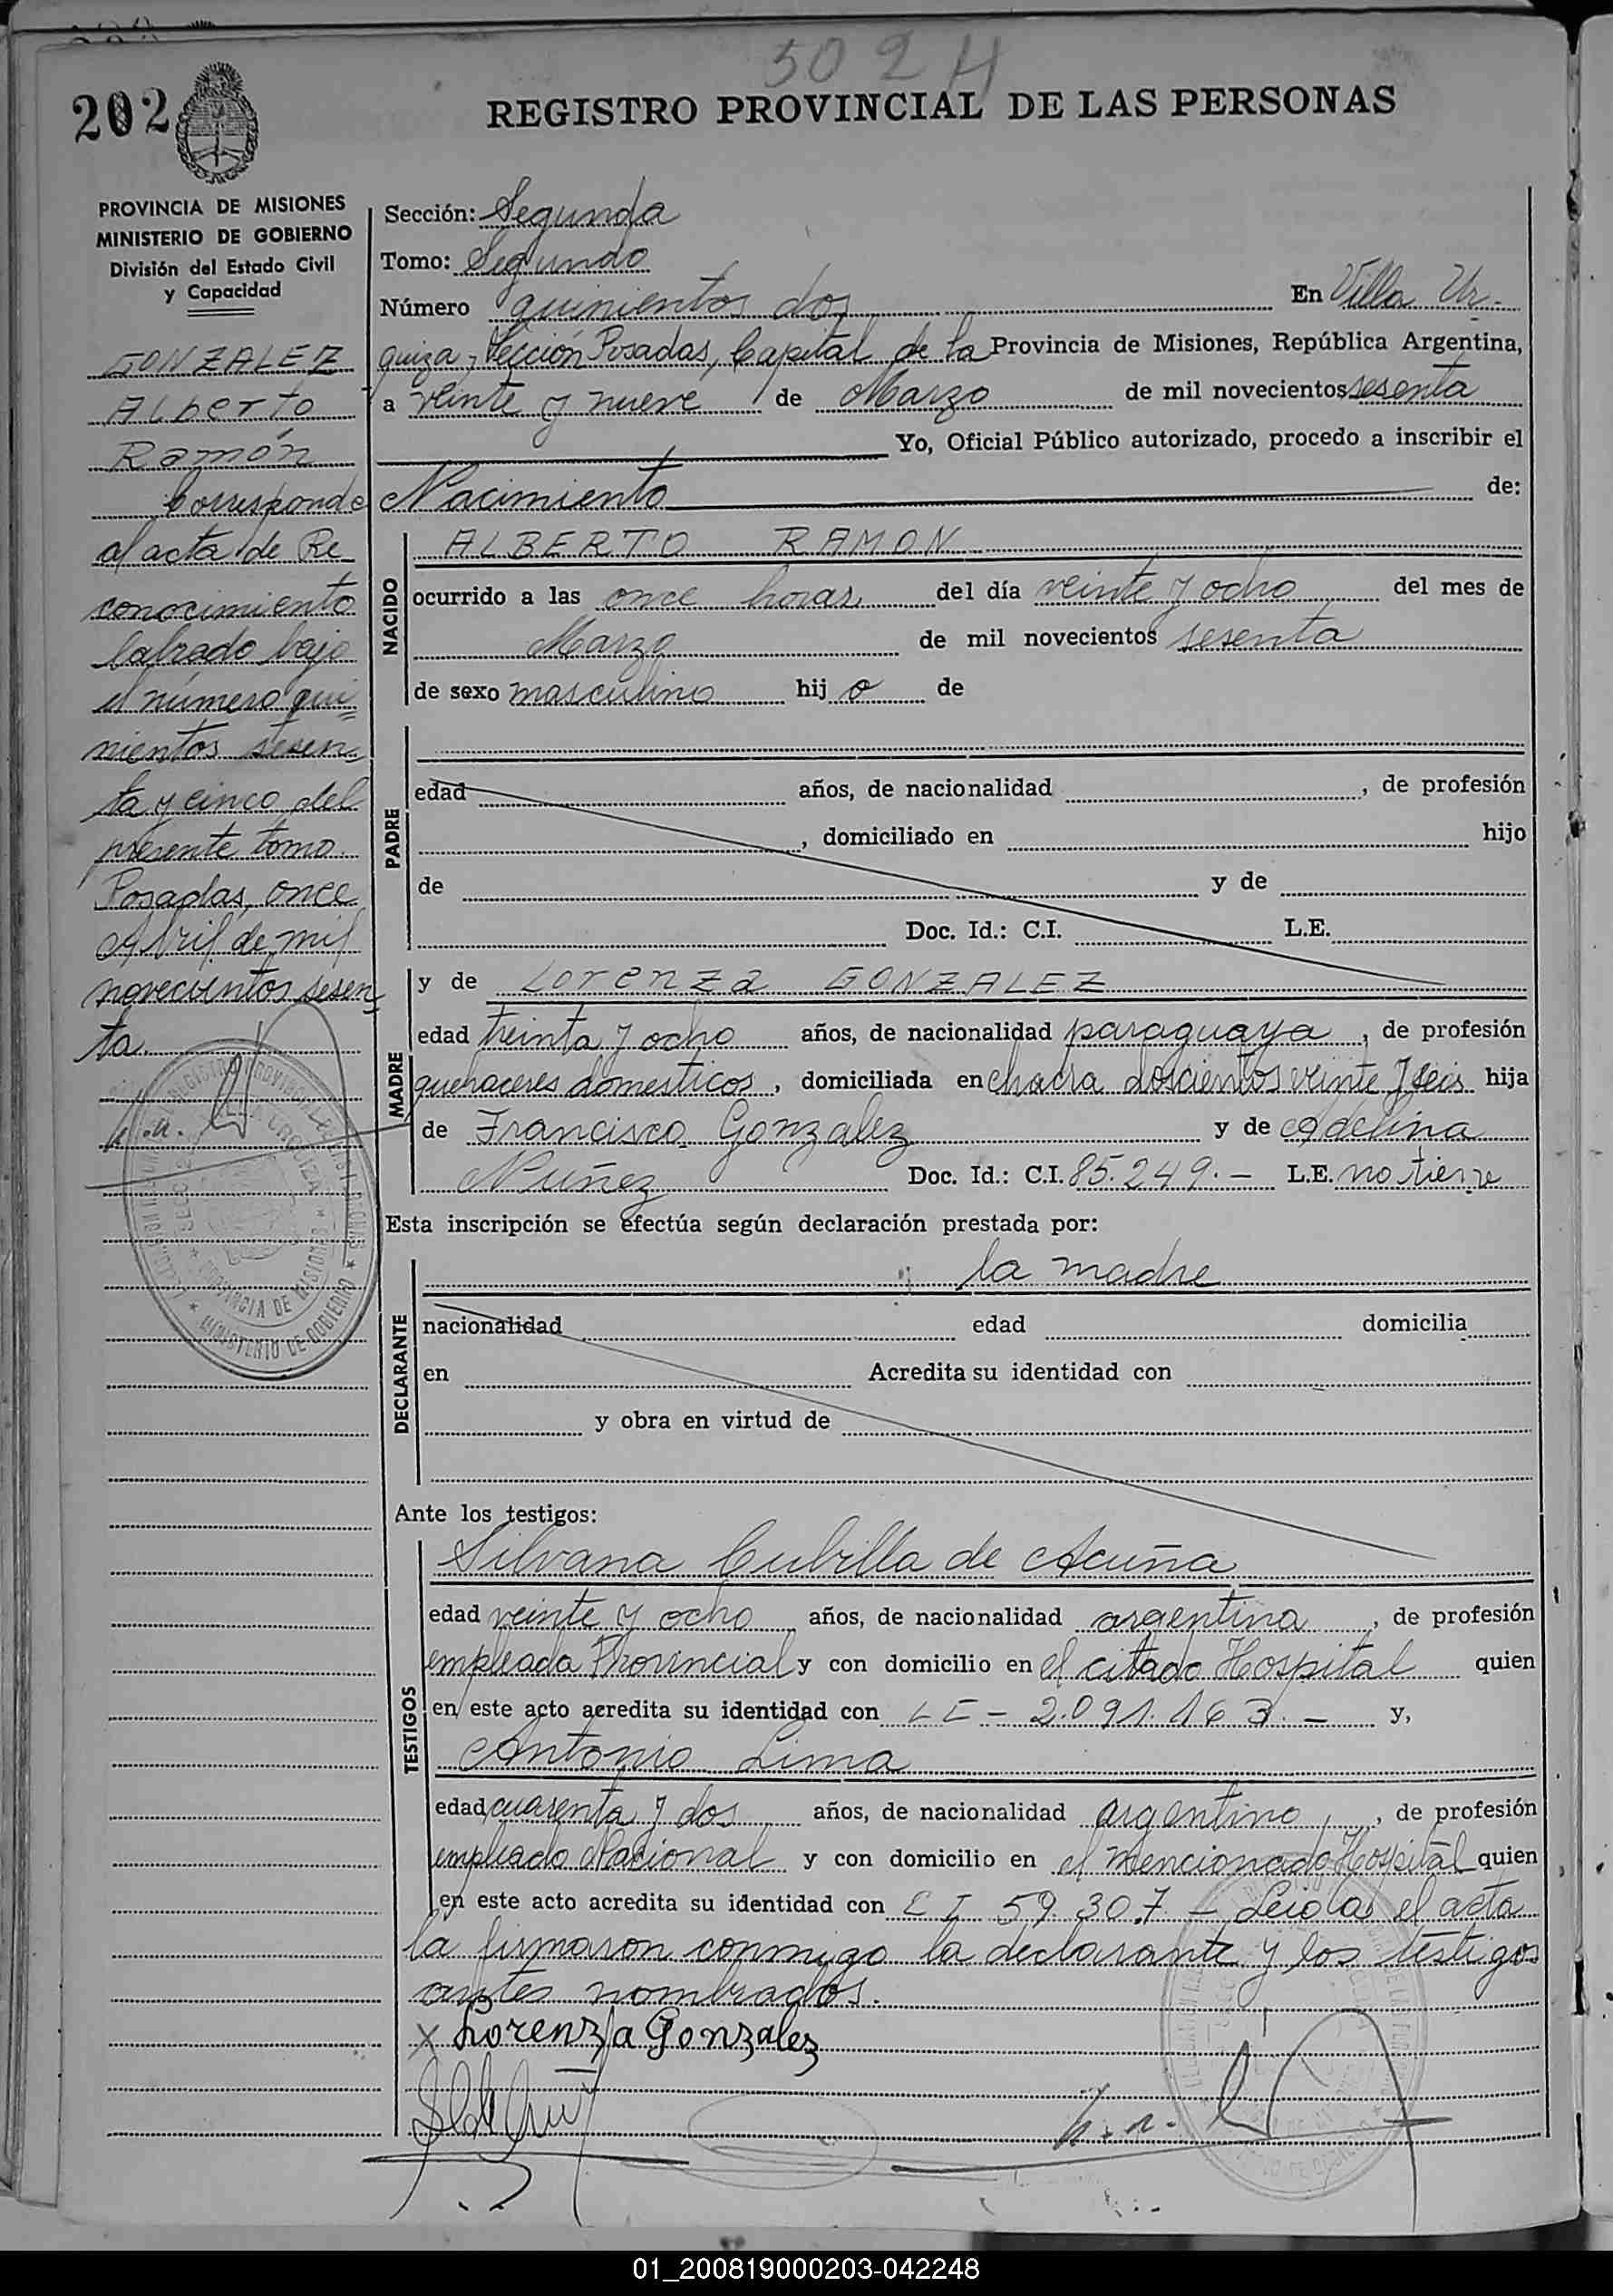 502 H
202
REGISTRO PROVINCIAL DE LAS PERSONAS
PROVINCIA DE MISIONES
MINISTERIO DE GOBIERNO
División del Estado Civil
y Capacidad
GONZALEZ
Alberto
Ramón
Corresponde
al acta de Re
conocimiento
labrado bajo
el número qui=
nientos sesen=
ta y cinco del
presente tomo.
Posadas, once
Abril de mil
novecientos sesen=
ta.
Sección: Segunda
Tomo: Segundo
Número quinientos dos En Villa Ur-
quiza, Sección Posadas, Capital de la Provincia de Misiones, República Argentina,
a veinte y nueve de Marzo de mil novecientos sesenta
Yo, Oficial Público autorizado, procedo a inscribir el
Nacimiento de:
NACIDO
ALBERTO RAMON
ocurrido a las once horas del día veinte y ocho del mes de
Marzo de mil novecientos sesenta
de sexo masculino hijo de
PADRE
edad años, de nacionalidad , de profesión
, domiciliado en hijo
de y de
Doc. Id.: C.I. L.E.
MADRE
y de Lorenza GONZALEZ
edad treinta y ocho años, de nacionalidad paraguaya, de profesión
quehaceres domesticos, domiciliada en chacra doscientos veinte y seis hija
de Francisco Gonzalez y de Adelina
Nuñez Doc. Id.: C.I. 85.249.- L.E. no tiene
Esta inscripción se efectúa según declaración prestada por:
DECLARANTE
la madre
nacionalidad edad domicilia
en Acredita su identidad con
y obra en virtud de
Ante los testigos:
TESTIGOS
Silvana Cubilla de Acuña
edad veinte y ocho años, de nacionalidad argentina, de profesión
empleada Provincial y con domicilio en el citado Hospital quien
en este acto acredita su identidad con LC - 2.091.163.- y,
Antonio Lima
edad cuarenta y dos años, de nacionalidad argentino, de profesión
empleado Nacional y con domicilio en el mencionado Hospital quien
en este acto acredita su identidad con C I 59.307 - Leidas el acta
la firmaron conmigo la declarante y los testigos
antes nombrados.
x Lorenza Gonzalez
01_200819000203-042248